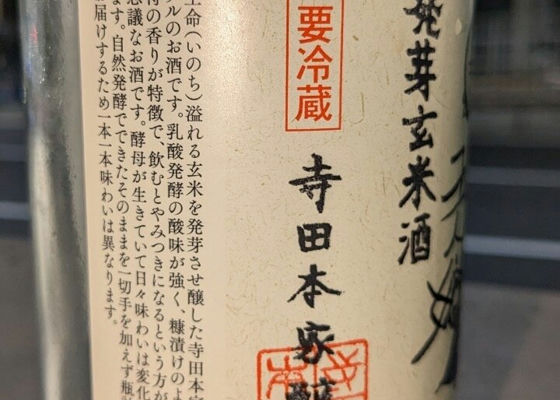 発芽玄米酒
要冷蔵
寺田本家醸
生命(いのち)溢れる玄米を発芽させ醸した寺田本家
ルのお酒です。乳酸発酵の酸味が強く、糠漬けのよ
の香りが特徴で、飲むとやみつきになるという方が
思議なお酒です。酵母が生きていて日々味わいは変化
ます。自然発酵でできたそのままを一切手を加えず瓶
届けするため一本一本味わいは異なります。